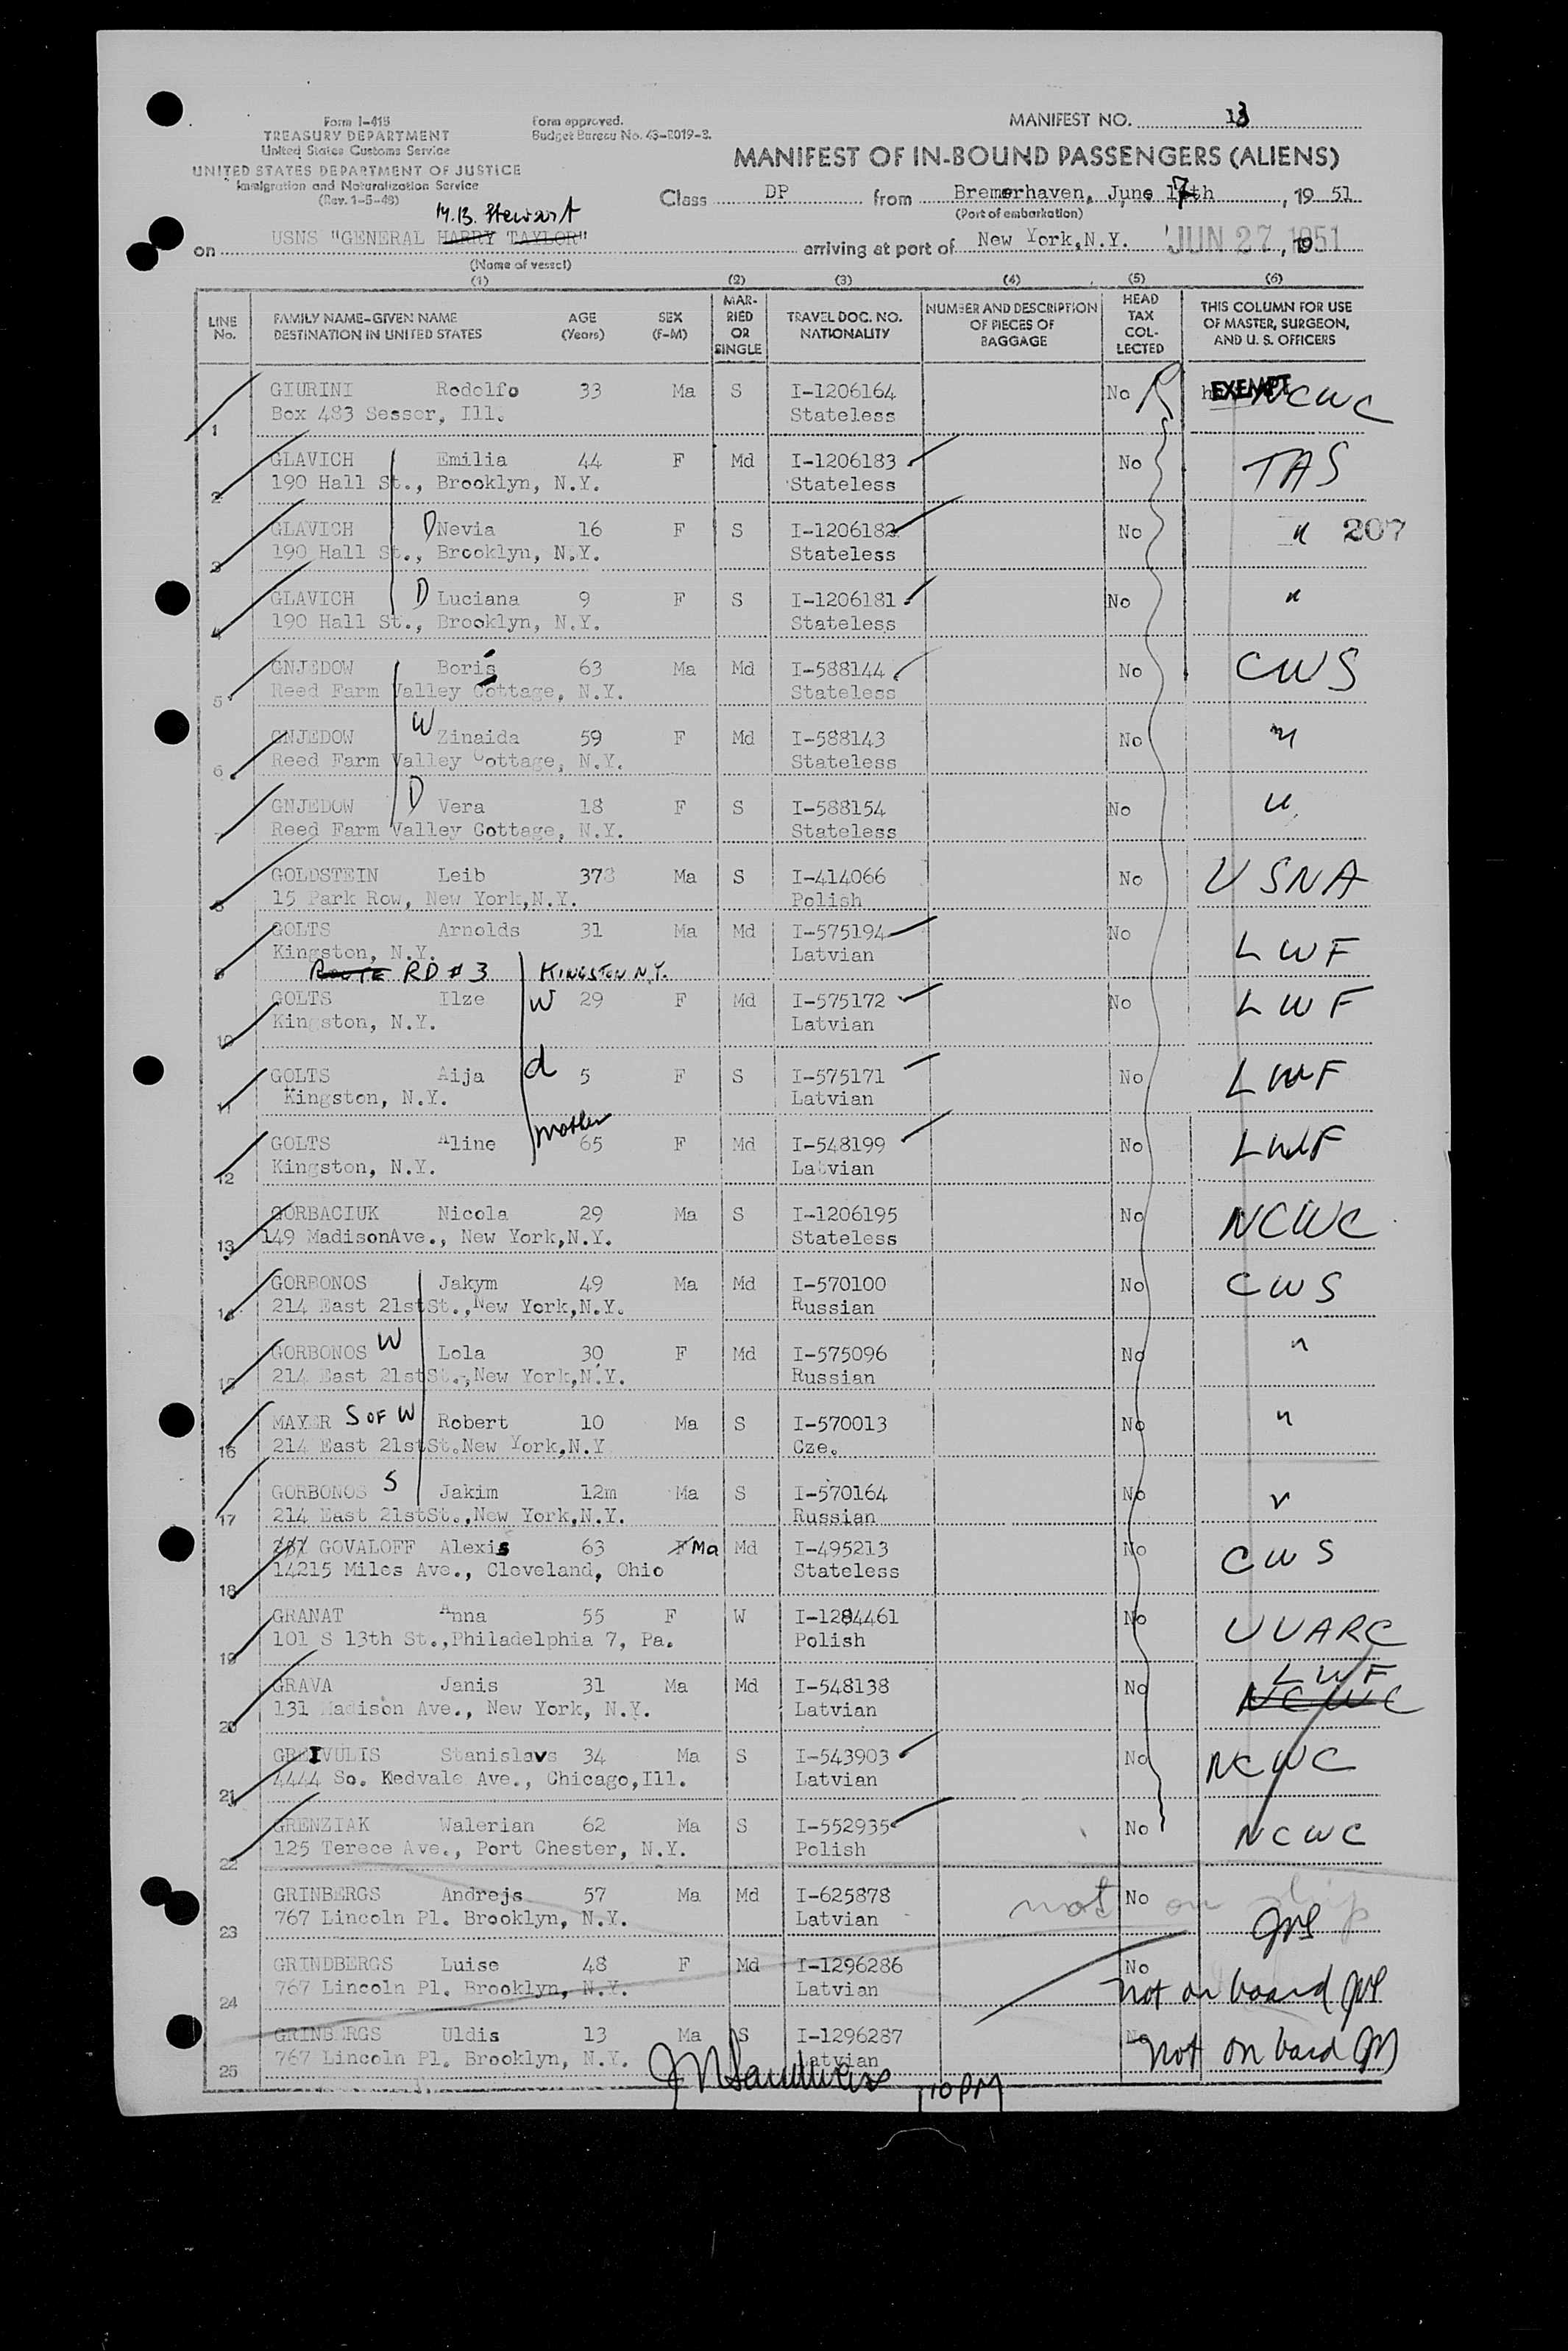 Form I-418
TREASURY DEPARTMENT
United States Customs Service
UNITED STATES DEPARTMENT OF JUSTICE
Immigration and Naturalization Service
(Rev. 1-5-48)
Form approved.
Budget Bureau No. 43-R019-2.
MANIFEST NO. 13
MANIFEST OF IN-BOUND PASSENGERS (ALIENS)
Class DP from Bremerhaven, June 17th, 1951
(Port of embarkation)
M.B. Stewart
on USNS "GENERAL HARRY TAYLOR" arriving at port of New York,N.Y. JUN 27 1951, 19
(Name of vessel)
(1) (2) (3) (4) (5) (6)
LINE No. FAMILY NAME-GIVEN NAME DESTINATION IN UNITED STATES AGE (Years) SEX (F-M) MARRIED OR SINGLE TRAVEL DOC. NO. NATIONALITY NUMBER AND DESCRIPTION OF PIECES OF BAGGAGE HEAD TAX COLLECTED THIS COLUMN FOR USE OF MASTER, SURGEON, AND U. S. OFFICERS
GIURINI Rodolfo 33 Ma S I-1206164 No EXEMPT NCWC
1 Box 483 Sesser, Ill. Stateless
GLAVICH Emilia 44 F Md I-1206183 No TAS
2 190 Hall St., Brooklyn, N.Y. Stateless
GLAVICH D Nevia 16 F S I-1206182 No " 207
3 190 Hall St., Brooklyn, N.Y. Stateless
GLAVICH D Luciana 9 F S I-1206181 No "
4 190 Hall St., Brooklyn, N.Y. Stateless
GNJEDOW Boris 63 Ma Md I-588144 No CWS
5 Reed Farm Valley Cottage, N.Y. Stateless
GNJEDOW W Zinaida 59 F Md I-588143 No "
6 Reed Farm Valley Cottage, N.Y. Stateless
GNJEDOW D Vera 18 F S I-588154 No "
7 Reed Farm Valley Cottage, N.Y. Stateless
GOLDSTEIN Leib 37 Ma S I-414066 No USNA
8 15 Park Row, New York,N.Y. Polish
GOLTS Arnolds 31 Ma Md I-575194 No LWF
9 Kingston, N.Y. Latvian
ROUTE RD # 3 KINGSTON N.Y.
GOLTS Ilze W 29 F Md I-575172 No LWF
10 Kingston, N.Y. Latvian
GOLTS Aija d 5 F S I-575171 No LWF
11 Kingston, N.Y. Latvian
GOLTS Aline mother 65 F Md I-548199 No LWF
12 Kingston, N.Y. Latvian
GORBACIUK Nicola 29 Ma S I-1206195 No NCWC
13 149 MadisonAve., New York,N.Y. Stateless
GORBONOS Jakym 49 Ma Md I-570100 No CWS
14 214 East 21stSt.,New York,N.Y. Russian
GORBONOS W Lola 30 F Md I-575096 No "
15 214 East 21stSt.,New York,N.Y. Russian
MAYER S OF W Robert 10 Ma S I-570013 No "
16 214 East 21stSt.New York,N.Y Cze.
GORBONOS S Jakim 12m Ma S I-570164 No "
17 214 East 21stSt.,New York,N.Y. Russian
GOVALOFF Alexis 63 F Ma Md I-495213 No CWS
18 14215 Miles Ave., Cleveland, Ohio Stateless
GRANAT Anna 55 F W I-1284461 No UUARC
19 101 S 13th St.,Philadelphia 7, Pa. Polish
GRAVA Janis 31 Ma Md I-548138 No LWF NCWC
20 131 Madison Ave., New York, N.Y. Latvian
GREIVULIS Stanislavs 34 Ma S I-543903 No NCWC
21 4444 So. Kedvale Ave., Chicago,Ill. Latvian
GRENZIAK Walerian 62 Ma S I-552935 No NCWC
22 125 Terece Ave., Port Chester, N.Y. Polish
GRINBERGS Andrejs 57 Ma Md I-625878 not No on ship
23 767 Lincoln Pl. Brooklyn, N.Y. Latvian
GRINDBERGS Luise 48 F Md I-1296286 No
24 767 Lincoln Pl. Brooklyn, N.Y. Latvian not on board
GRINBERGS Uldis 13 Ma S I-1296287 No not on board
25 767 Lincoln Pl. Brooklyn, N.Y. Latvian
10 PM